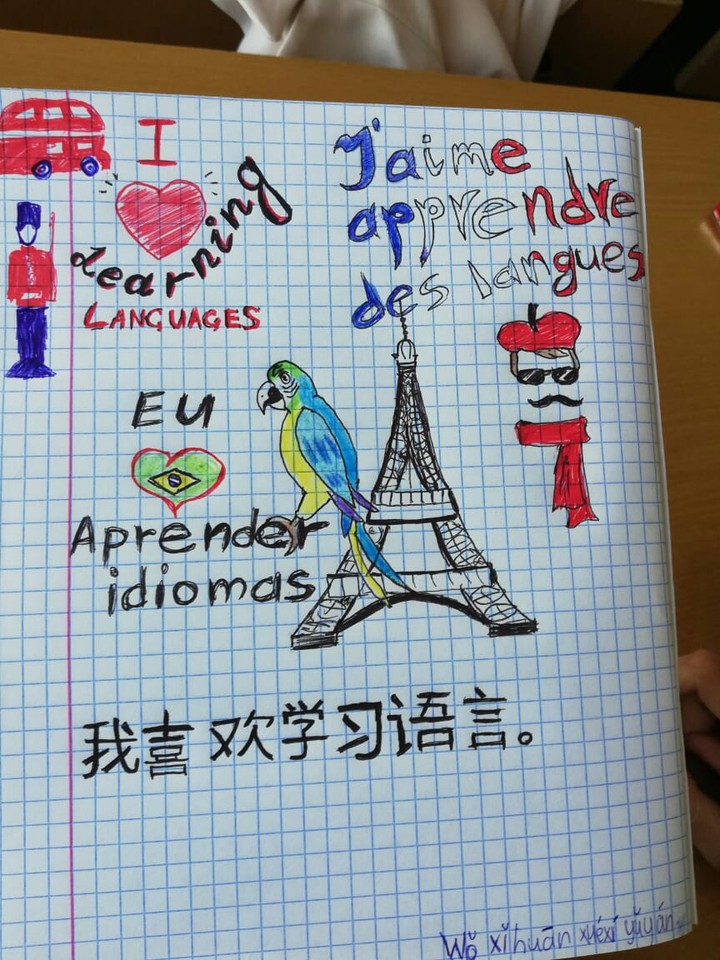 I
Learning
LANGUAGES
J'aime
apprendre
des langues
EU
Aprender
idiomas
我喜欢学习语言。
Wǒ xǐhuān xuéxí yǔyán.